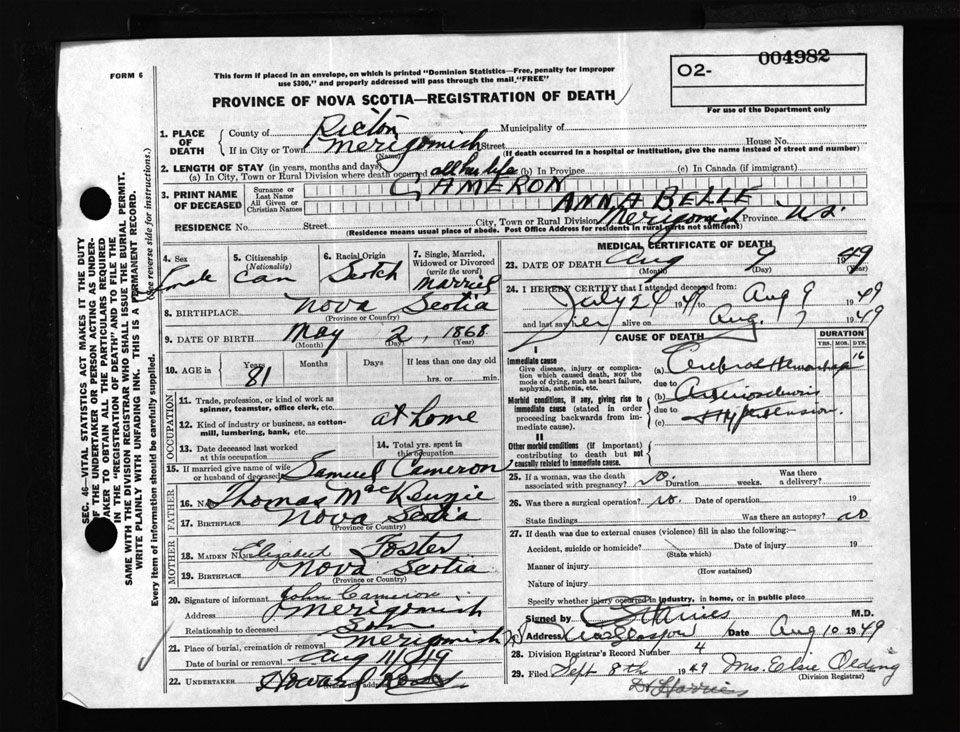 FORM 6
This form if placed in an envelope, on which is printed "Dominion Statistics—Free, penalty for improper
use $300," and properly addressed will pass through the mail, "FREE"
O2- 004982
For use of the Department only
PROVINCE OF NOVA SCOTIA—REGISTRATION OF DEATH
1. PLACE OF DEATH
County of Pictou Municipality of
If in City or Town Merigomish Street House No.
(Name) (If death occurred in a hospital or institution, give the name instead of street and number)
2. LENGTH OF STAY (in years, months and days)
(a) In City, Town or Rural Division where death occurred all her life (b) In Province (c) In Canada (if immigrant)
3. PRINT NAME OF DECEASED
Surname or Last Name CAMERON
All Given or Christian Names ANNA BELLE
RESIDENCE No. Street City, Town or Rural Division Merigomish Province N.S.
(Residence means usual place of abode. Post Office Address for residents in rural parts not sufficient)
4. Sex Female
5. Citizenship (Nationality) Can
6. Racial Origin Scotch
7. Single, Married, Widowed or Divorced (write the word) Married
8. BIRTHPLACE Nova Scotia
(Province or Country)
9. DATE OF BIRTH May 2, 1868
(Month) (Day) (Year)
10. AGE in Years 81 Months Days If less than one day old
hrs. or min.
OCCUPATION
11. Trade, profession, or kind of work as spinner, teamster, office clerk, etc.
12. Kind of industry or business, as cotton-mill, lumbering, bank, etc. at home
13. Date deceased last worked at this occupation
14. Total yrs. spent in this occupation
15. If married give name of wife or husband of deceased Samuel Cameron
FATHER
16. Name Thomas MacKenzie
17. Birthplace Nova Scotia
(Province or Country)
MOTHER
18. MAIDEN NAME Elizabeth Foster
19. BIRTHPLACE Nova Scotia
(Province or Country)
20. Signature of informant John Cameron
Address Merigomish
Relationship to deceased Son
21. Place of burial, cremation or removal Merigomish
Date of burial or removal Aug 11/49
22. UNDERTAKER Howard
(Name and address)
MEDICAL CERTIFICATE OF DEATH
23. DATE OF DEATH Aug 9 1949
(Month) (Day) (Year)
24. I HEREBY CERTIFY that I attended deceased from:
July 24 1949 to Aug 9 1949
and last saw her alive on Aug. 7 1949
CAUSE OF DEATH
DURATION
YRS. MOS. DYS.
I
Immediate cause
Give disease, injury or complication which caused death, not the mode of dying, such as heart failure, asphyxia, asthenia, etc.
(a) Cerebral Hemorrhage 16
due to
Morbid conditions, if any, giving rise to immediate cause (stated in order proceeding backwards from immediate cause).
(b) Arteriosclerosis
due to
(c) Hypertension
II
Other morbid conditions (if important) contributing to death but not causally related to immediate cause.
25. If a woman, was the death associated with pregnancy? no. Duration weeks. Was there a delivery?
26. Was there a surgical operation? no. Date of operation 19
State findings Was there an autopsy? no
27. If death was due to external causes (violence) fill in also the following:
Accident, suicide or homicide? Date of injury 19
(State which)
Manner of injury
(How sustained)
Nature of injury
Specify whether injury occurred in industry, in home, or in public place
Signed by M.D.
Address New Glasgow Date Aug 10 1949
28. Division Registrar's Record Number 4
29. Filed Sept 8th 1949 Mrs. Elsie Olding
(Division Registrar)
Dr Harries
SEC. 46—VITAL STATISTICS ACT MAKES IT THE DUTY
OF THE UNDERTAKER OR PERSON ACTING AS UNDER-
TAKER TO OBTAIN ALL THE PARTICULARS REQUIRED
IN THE "REGISTRATION OF DEATH" AND TO FILE THE
SAME WITH THE DIVISION REGISTRAR WHO SHALL ISSUE THE BURIAL PERMIT.
WRITE PLAINLY WITH UNFADING INK. THIS IS A PERMANENT RECORD.
Every item of information should be carefully supplied. (See reverse side for instructions.)